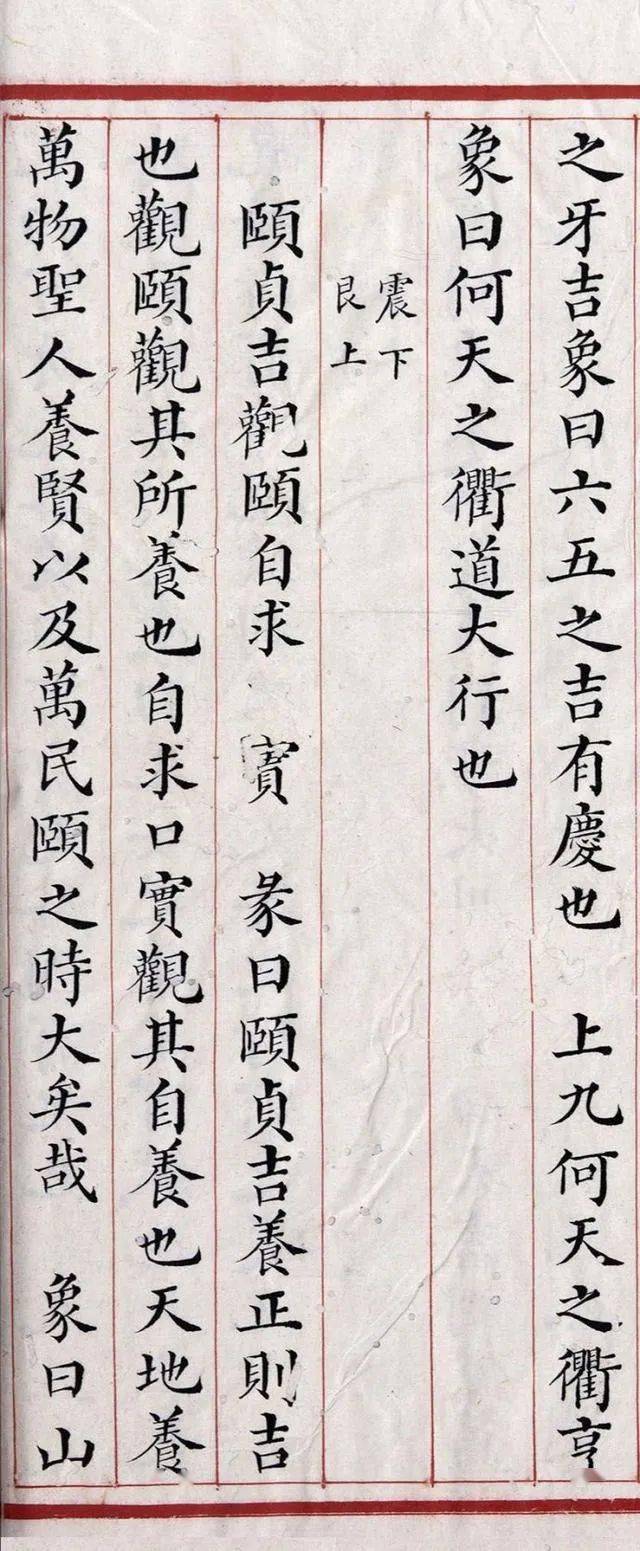 之牙吉象曰六五之吉有慶也　上九何天之衢亨
象曰何天之衢道大行也
震下
艮上
頤貞吉觀頤自求　實　彖曰頤貞吉養正則吉
也觀頤觀其所養也自求口實觀其自養也天地養
萬物聖人養賢以及萬民頤之時大矣哉　象曰山